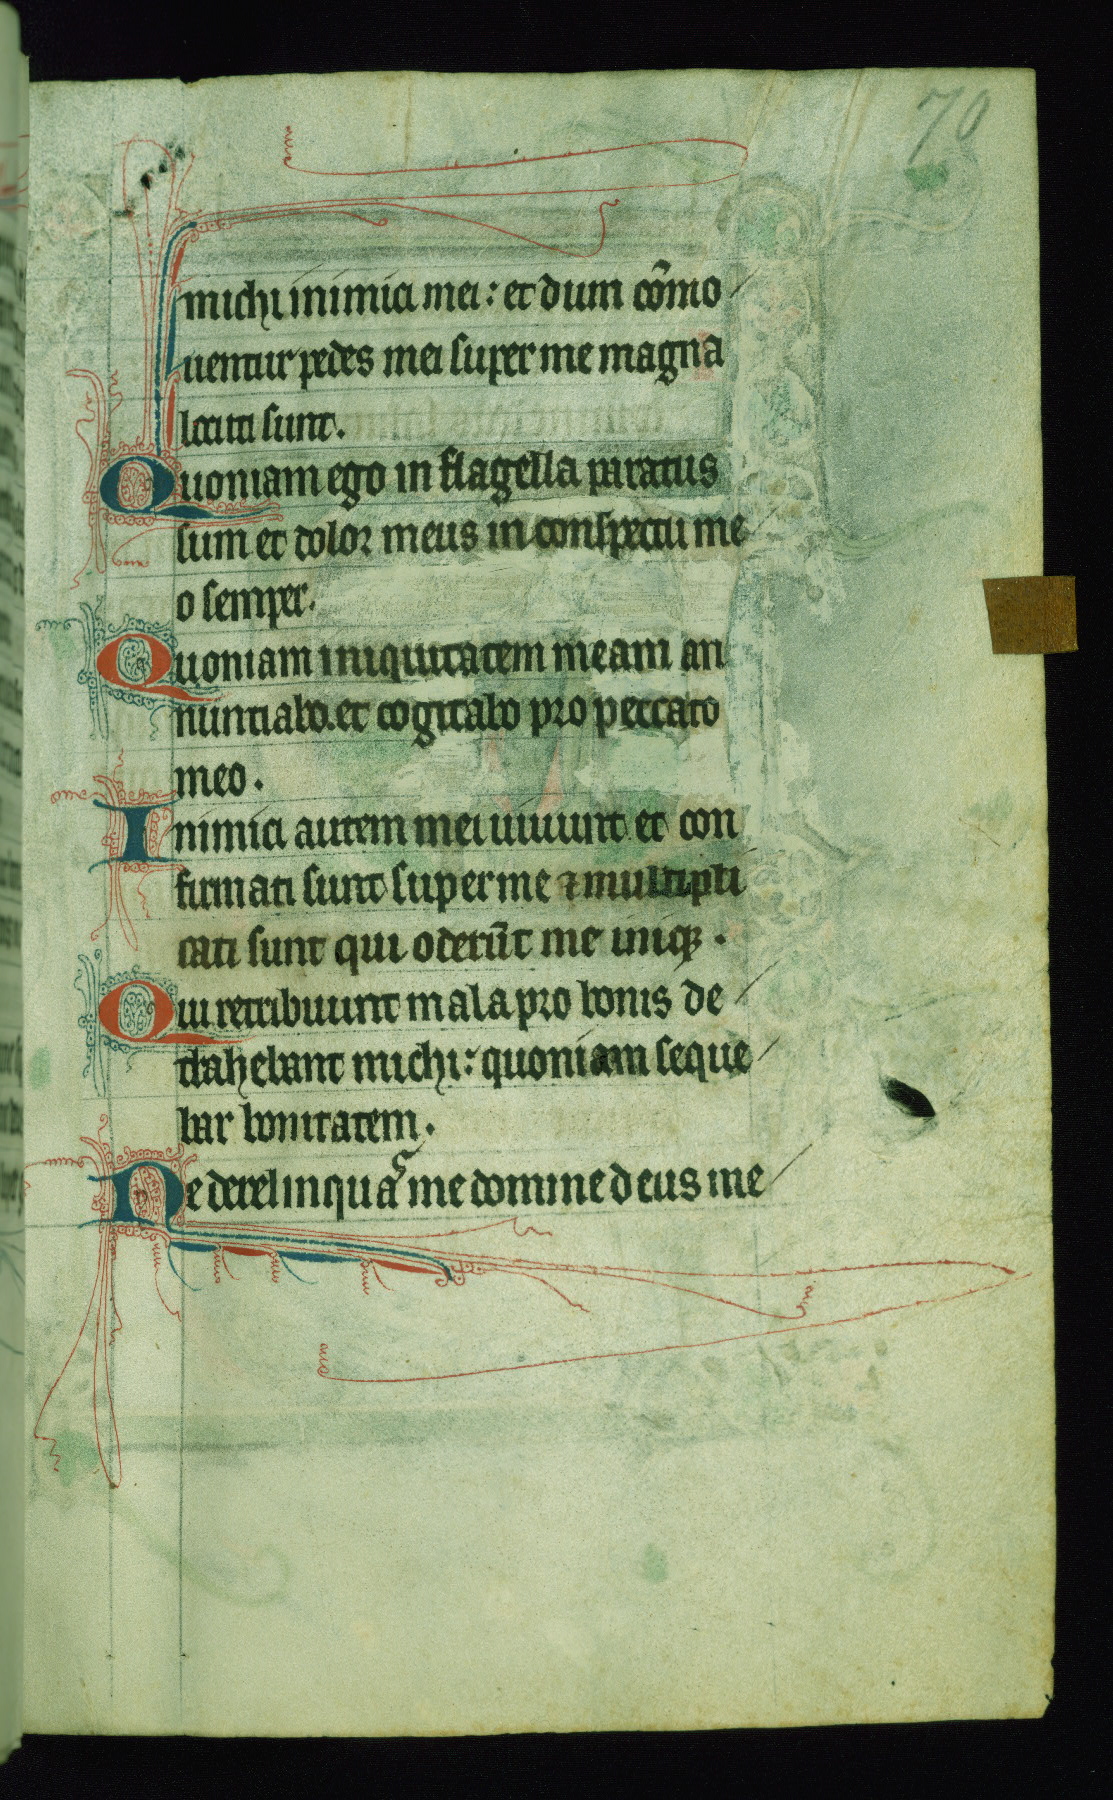 70
michi inimici mei: et dum cōmo
uentur pedes mei super me magna
locuti sunt.
Quoniam ego in flagella paratus
sum et dolor meus in conspectu me
o semper.
Quoniam iniquitatem meam an
nuntiabo. et cogitabo pro peccato
meo.
Inimici autem mei uiuunt et con
firmati sunt super me ⁊ multipli
cati sunt qui oderūt me iniqꝫ.
Qui retribuunt mala pro bonis de
trahebant michi: quoniam seque
bar bonitatem.
Ne derelinquaˢ me domine deus me